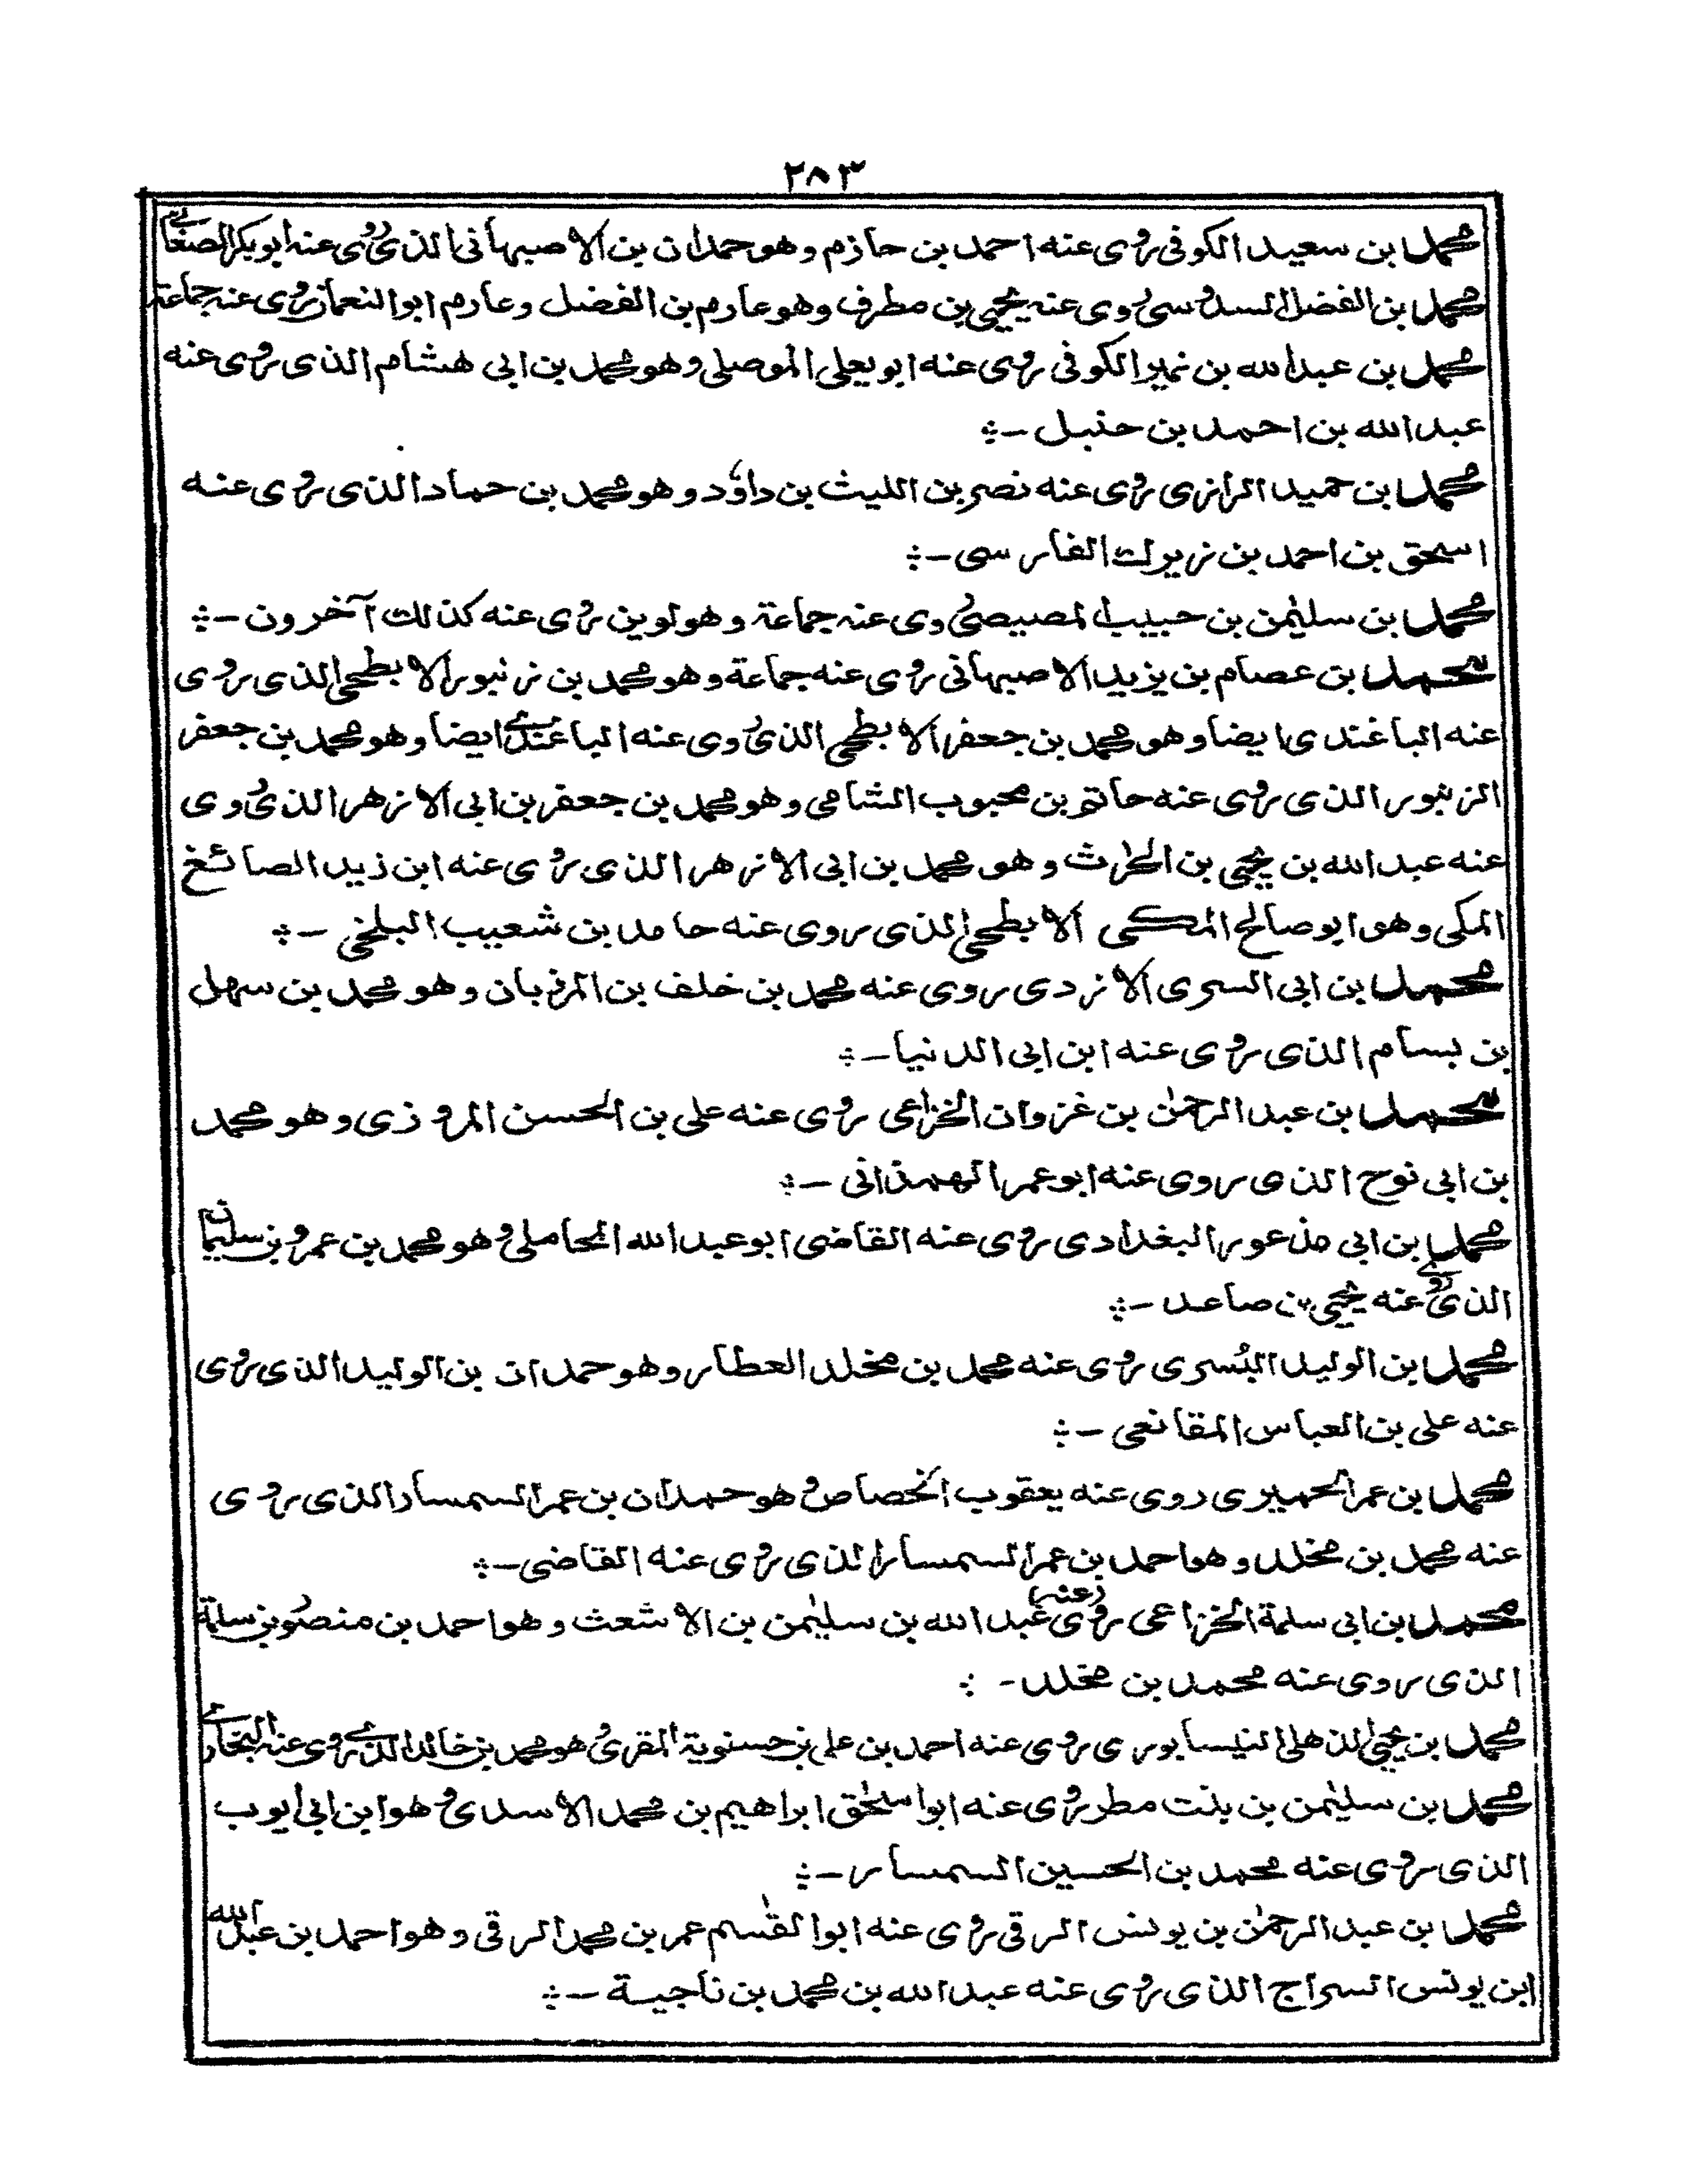 ٢٨٣
محمد بن سعيد الكوفى روى عنه احمد بن حازم وهو حمدان بن الاصبهانى الذى روى عنه ابو بكر الصغانى
محمد بن الفضل السدوسى روى عنه يحيى بن مطرف وهو عارم بن الفضل وعارم ابو النعمان روى عنه جماعة
محمد بن عبد الله بن نمير الكوفى روى عنه ابو يعلى الموصلى وهو محمد بن ابى هشام الذى روى عنه
عبد الله بن احمد بن حنبل -:
محمد بن حميد الرازى روى عنه نصر بن الليث بن داؤد وهو محمد بن حماد الذى روى عنه
اسحق بن احمد بن زيرك الفارسى -:
محمد بن سليٰمن بن حبيب المصيصى روى عنه جماعة وهو لوين روى عنه كذلك آخرون -:
محمد بن عصام بن يزيد الاصبهانى روى عنه جماعة وهو محمد بن زنبور الابطحى الذى روى
عنه الباغندى ايضا وهو محمد بن جعفر الابطحى الذى روى عنه الباغندى ايضا وهو محمد بن جعفر
الزنبور الذى روى عنه حاتم بن محبوب الشامى وهو محمد بن جعفر بن ابى الازهر الذى روى
عنه عبد الله بن يحيى بن الحٰرث وهو محمد بن ابى الازهر الذى روى عنه ابن زيد الصائغ
المكى وهو ابو صالح المكى الابطحى الذى روى عنه حامد بن شعيب البلخى -:
محمد بن ابى السرى الازدى روى عنه محمد بن خلف بن المرزبان وهو محمد بن سهل
بن بسام الذى روى عنه ابن ابى الدنيا -:
محمد بن عبد الرحمٰن بن غزوان الخزاعى روى عنه على بن الحسن المروزى وهو محمد
بن ابى نوح الذى روى عنه ابو عمر الهمذانى -:
محمد بن ابى مذعور البغدادى روى عنه القاضى ابو عبد الله المحاملى وهو محمد بن عمرو بن سليمان
الذى روى عنه يحيى بن صاعد -:
محمد بن الوليد البُسرى روى عنه محمد بن مخلد العطار وهو حمدان بن الوليد الذى روى
عنه على بن العباس المقانعى -:
محمد بن عمر الحميرى روى عنه يعقوب الخصاص وهو حمدان بن عمر السمسار الذى روى
عنه محمد بن مخلد وهو احمد بن عمر السمسار الذى روى عنه القاضى -:
محمد بن ابى سلمة الخزاعى روى (عنه) عبد الله بن سليٰمن بن الاشعث وهو احمد بن منصور بن سلمة
الذى روى عنه محمد بن مخلد -:
محمد بن يحيى الذهلى النيسابورى روى عنه احمد بن على بن حسنوية المقرى وهو محمد بن خالد الذى روى عنه البخارى
محمد بن سليٰمن بن بنت مطر روى عنه ابو اسحٰق ابراهيم بن محمد الاسدى وهو ابن ابى ايوب
الذى روى عنه محمد بن الحسين السمسار -:
محمد بن عبد الرحمٰن بن يونس الرقى روى عنه ابو القٰسم عمر بن محمد الرقى وهو احمد بن عبد الله
ابن يونس السراج الذى روى عنه عبد الله بن محمد بن ناجية -: